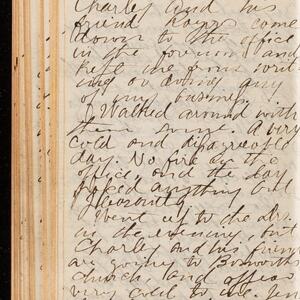 Charley and his
friend have come
down to the office
in the forenoon and
kept me from writ
ing or doing any
of my business.
I Walked around with
them some. A very
cold and disagreeable
day. No fire in the
office, and the day
looked anything but
pleasantly
Went up to the
in the evening, but
Charley and his friend
are going to Bosworth's
church, and
very cold to the